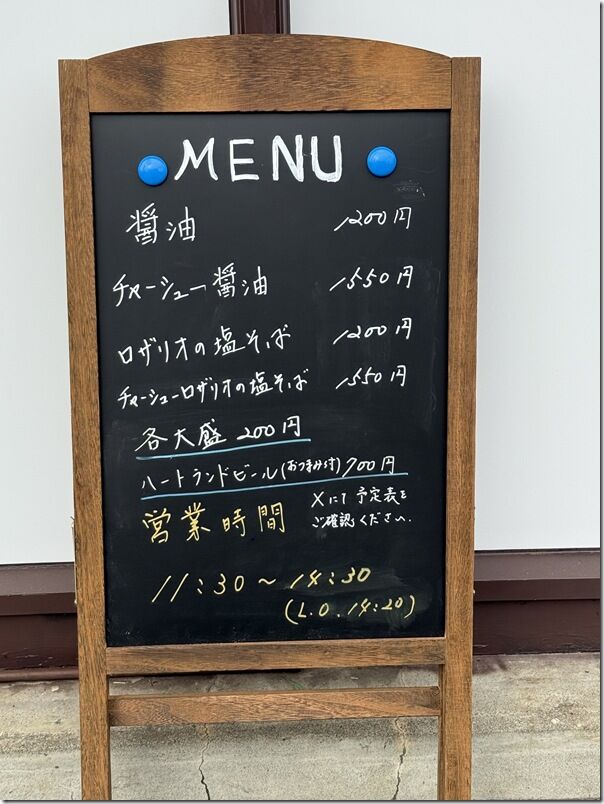 MENU
醤油 1200円
チャーシュー醤油 1550円
ロザリオの塩そば 1200円
チャーシューロザリオの塩そば 1550円
各大盛 200円
ハートランドビール(おつまみ付) 700円
営業時間
Xにて予定表を
ご確認ください.
11:30~14:30
(L.O.14:20)